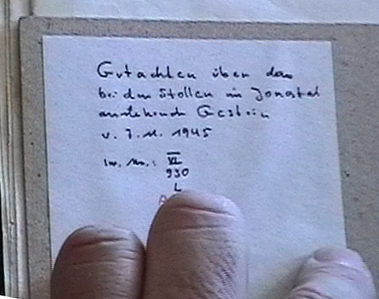 Gutachten über das
bei dem Stollen im Jonastal
anstehende Gestein
v. 7.11. 1945
Inv. Nr.: VI
930
L